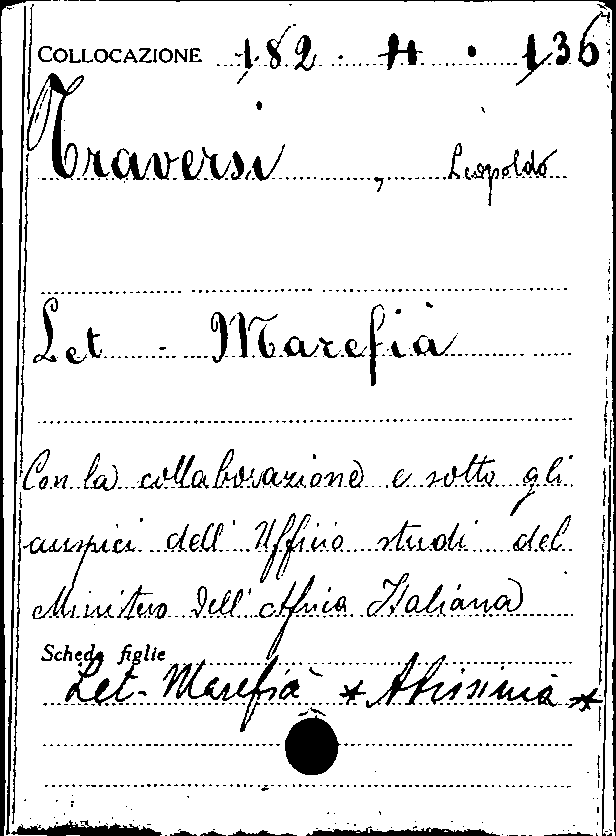 COLLOCAZIONE 182 . H . 136
Traversi , Leopoldo
Let - Marefià
Con la collaborazione e sotto gli
auspici dell' Ufficio studi del
Ministero dell' Africa Italiana
Schede figlie
Let-Marefià * Abissinia *